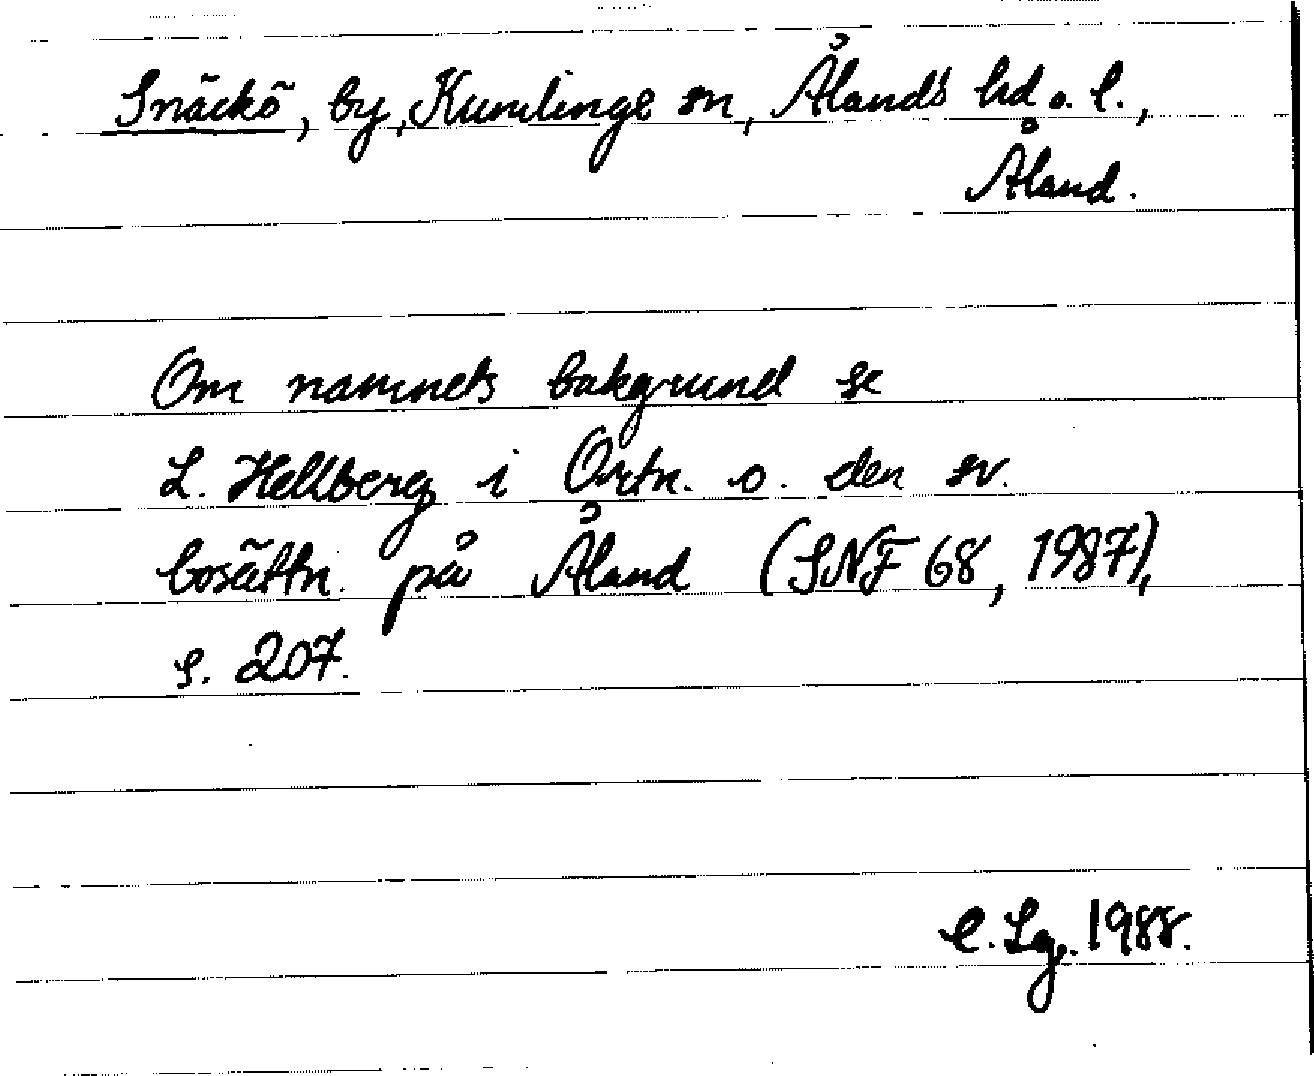 Snäckö, by, Kumlinge sn, Ålands hd o. l.,
Åland.
Om namnets bakgrund se
L. Hellberg i Ortn. o. den sv.
bosättn. på Åland (SNF 68, 1987),
s. 207.
C. Lg. 1988.